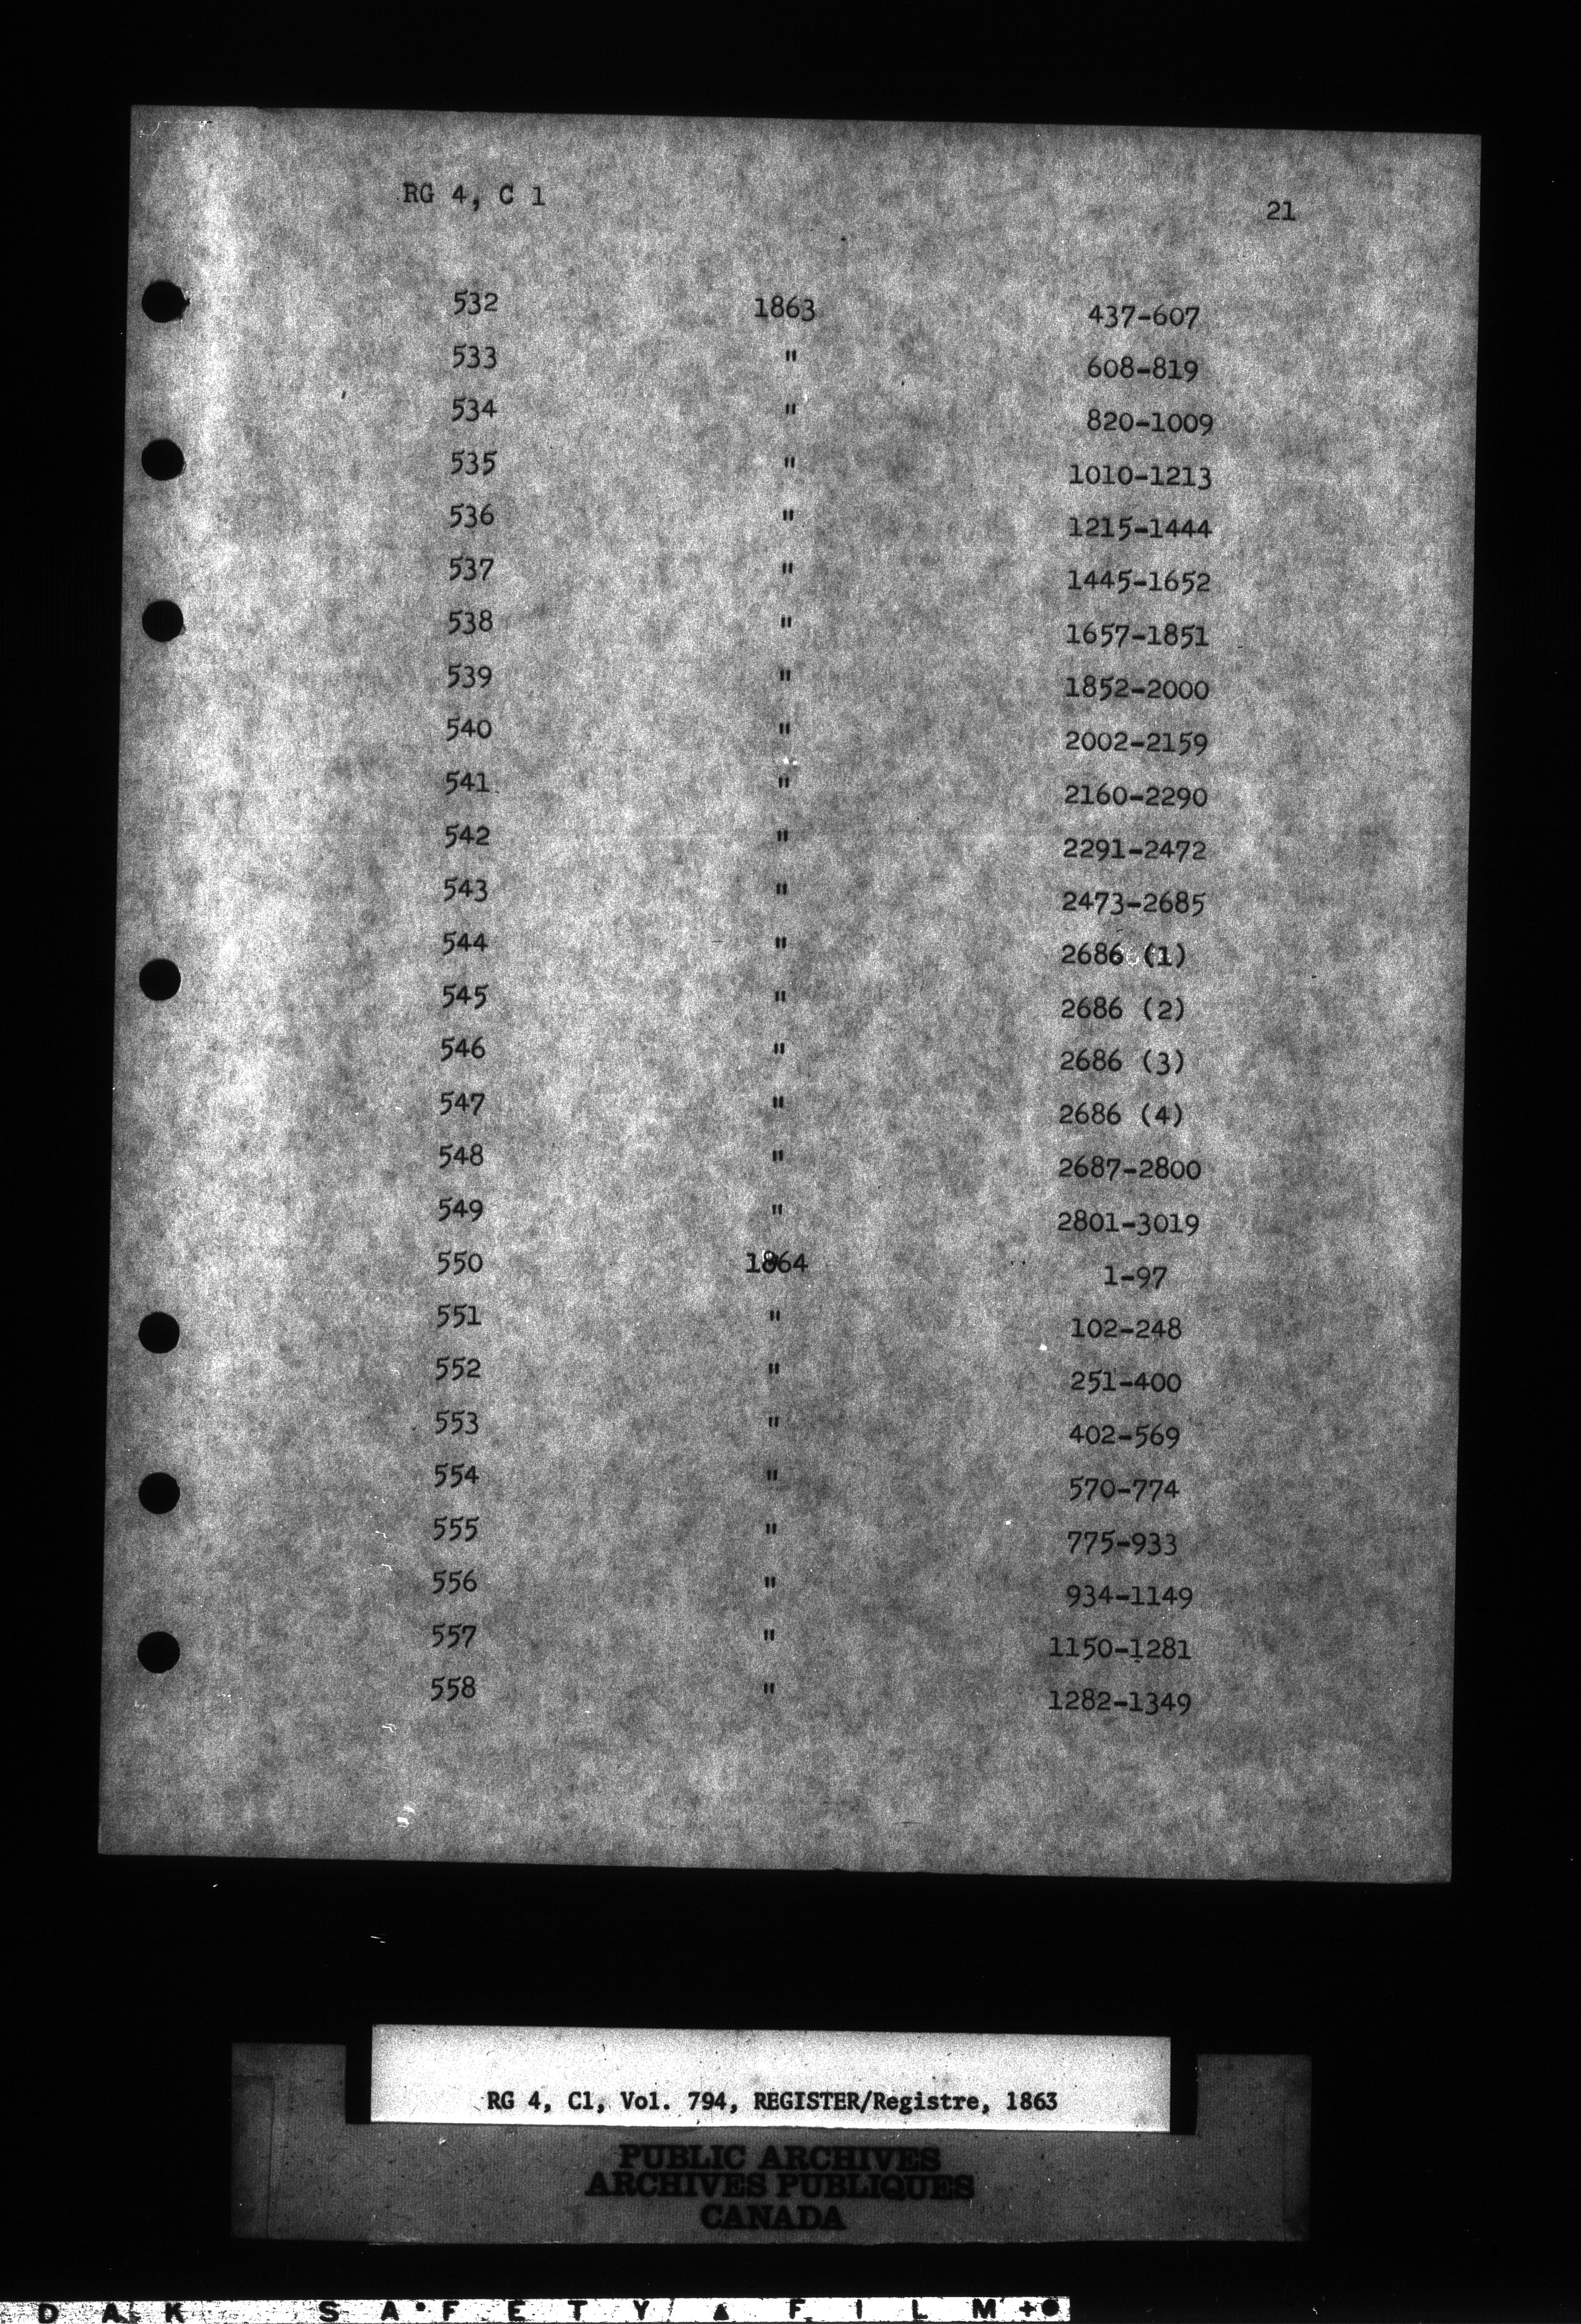 RG 4, C 1 21
532 1863 437-607
533 " 608-819
534 " 820-1009
535 " 1010-1213
536 " 1215-1444
537 " 1445-1652
538 " 1657-1851
539 " 1852-2000
540 " 2002-2159
541 " 2160-2290
542 " 2291-2472
543 " 2473-2685
544 " 2686 (1)
545 " 2686 (2)
546 " 2686 (3)
547 " 2686 (4)
548 " 2687-2800
549 " 2801-3019
550 1864 1-97
551 " 102-248
552 " 251-400
553 " 402-569
554 " 570-774
555 " 775-933
556 " 934-1149
557 " 1150-1281
558 " 1282-1349
RG 4, C1, Vol. 794, REGISTER/Registre, 1863
PUBLIC ARCHIVES
ARCHIVES PUBLIQUES
CANADA
DAK SAFETY FILM